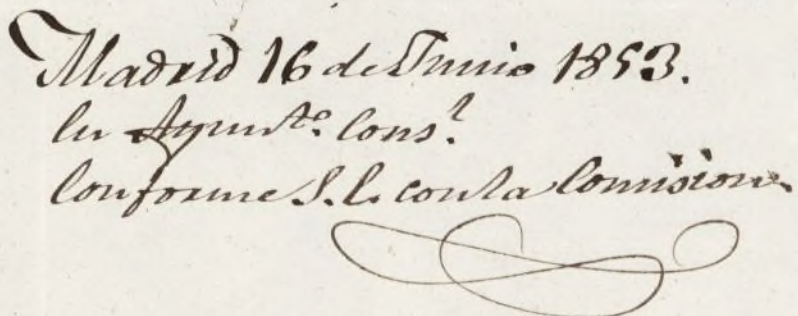 Madrid 16 de Junio 1853.
En Ayunt.º Cons.l
Conforme S. E. con la Comision